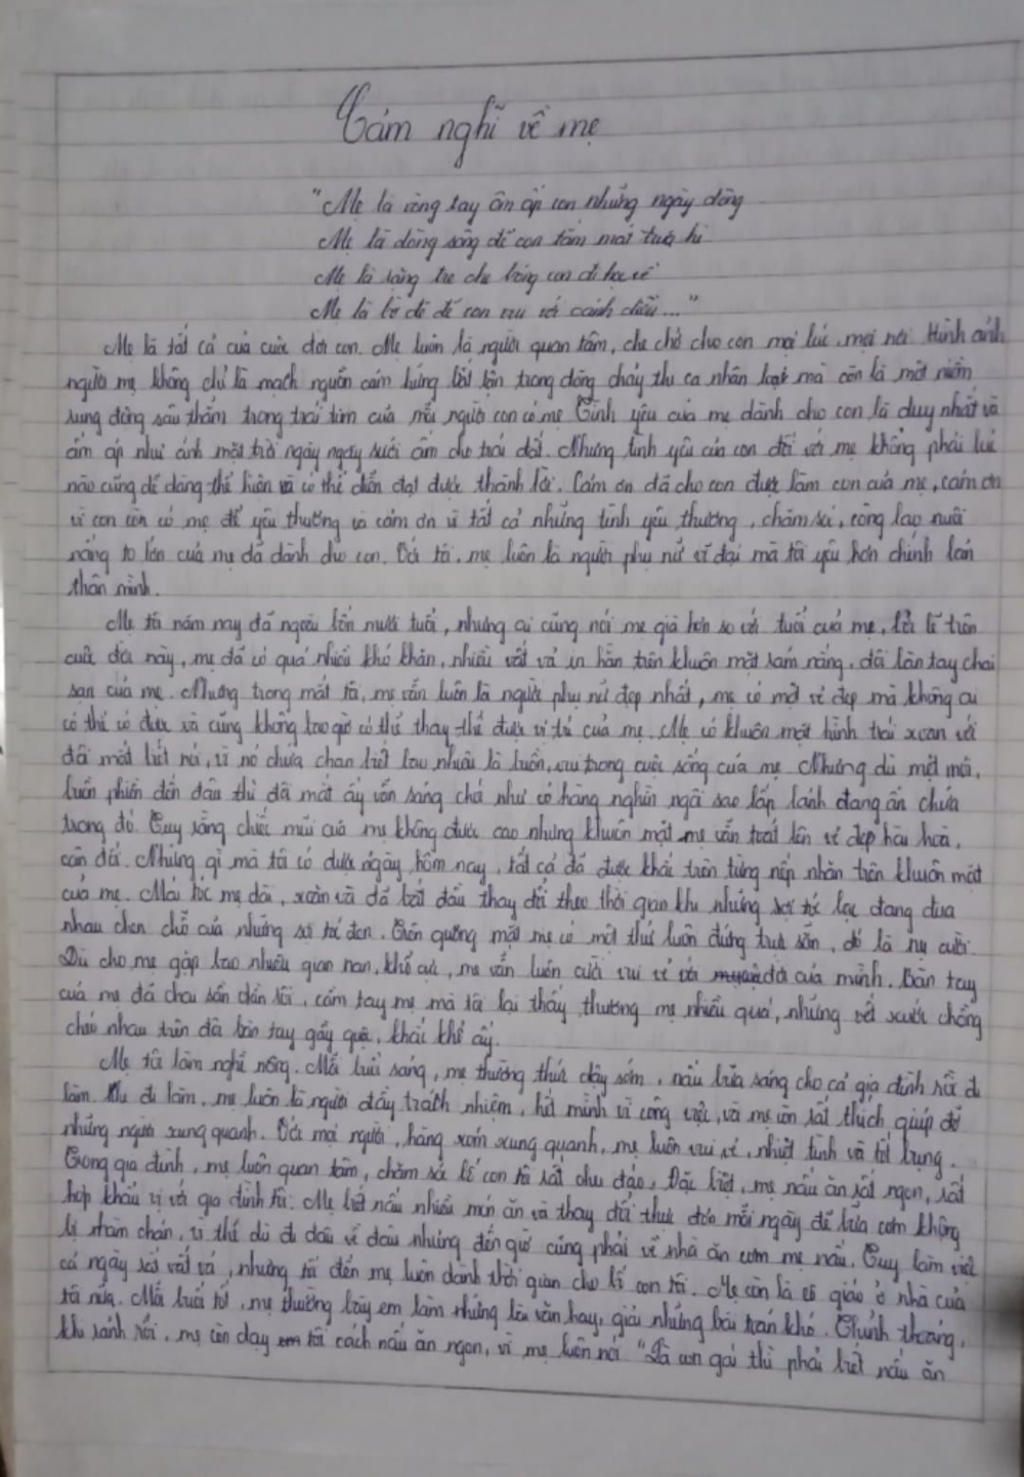 Cảm nghĩ về mẹ
"Mẹ là vòng tay ôm ấp con những ngày đông
Mẹ là dòng sông để con tắm mát trưa hè
Mẹ là rặng tre che bóng con đi học về
Mẹ là bờ đê để con vui với cánh diều..."
Mẹ là tất cả của cuộc đời con. Mẹ luôn là người quan tâm, che chở cho con mọi lúc, mọi nơi. Hình ảnh
người mẹ không chỉ là mạch nguồn cảm hứng bất tận trong dòng chảy thi ca nhân loại mà còn là một niềm
rung động sâu thẳm trong trái tim của mỗi người con có mẹ. Tình yêu của mẹ dành cho con là duy nhất và
ấm áp như ánh mặt trời ngày ngày sưởi ấm cho trái đất. Nhưng tình yêu của con đối với mẹ không phải lúc
nào cũng dễ dàng thể hiện và có thể diễn đạt được thành lời. Cảm ơn đã cho con được làm con của mẹ, cảm ơn
vì con còn có mẹ để yêu thương và cảm ơn vì tất cả những tình yêu thương, chăm sóc, công lao nuôi
nấng to lớn của mẹ đã dành cho con. Với tôi, mẹ luôn là người phụ nữ vĩ đại mà tôi yêu hơn chính bản
thân mình.
Mẹ tôi năm nay đã ngoài bốn mươi tuổi, nhưng ai cũng nói mẹ già hơn so với tuổi của mẹ, bởi lẽ trên
cuộc đời này, mẹ đã có quá nhiều khó khăn, nhiều vất vả in hằn trên khuôn mặt sạm nắng, đôi bàn tay chai
sạn của mẹ. Nhưng trong mắt tôi, mẹ vẫn luôn là người phụ nữ đẹp nhất, mẹ có một vẻ đẹp mà không ai
có thể có được và cũng không bao giờ có thể thay thế được vị trí của mẹ. Mẹ có khuôn mặt hình trái xoan với
đôi mắt biết nói, vì nó chứa chan biết bao nhiêu là buồn, vui trong cuộc sống của mẹ. Nhưng dù mệt mỏi,
buồn phiền đến đâu thì đôi mắt ấy vẫn sáng chói như có hàng nghìn ngôi sao lấp lánh đang ẩn chứa
trong đó. Tuy rằng chiếc mũi của mẹ không được cao nhưng khuôn mặt mẹ vẫn toát lên vẻ đẹp hài hoà,
cân đối. Những gì mà tôi có được ngày hôm nay, tất cả đã được khắc trên từng nếp nhăn trên khuôn mặt
của mẹ. Mái tóc mẹ dài, xoăn và đã bắt đầu thay đổi theo thời gian khi những sợi tóc bạc đang đua
nhau chen chỗ của những sợi tóc đen. Trên gương mặt mẹ có một thứ luôn đứng trực sẵn, đó là nụ cười.
Dù cho mẹ gặp bao nhiêu gian nan, khổ cực, mẹ vẫn luôn cười vui vẻ với đời của mình. Bàn tay
của mẹ đã chai sần dần rồi, cầm tay mẹ mà tôi lại thấy thương mẹ nhiều quá, những vết xước chồng
chéo nhau trên đôi bàn tay gầy guộc, khắc khổ ấy.
Mẹ tôi làm nghề nông. Mỗi buổi sáng, mẹ thường thức dậy sớm, nấu bữa sáng cho cả gia đình rồi đi
làm. Khi đi làm, mẹ luôn là người đầy trách nhiệm, hết mình vì công việc, và mẹ còn rất thích giúp đỡ
những người xung quanh. Với mọi người, hàng xóm xung quanh, mẹ luôn vui vẻ, nhiệt tình và tốt bụng.
Trong gia đình, mẹ luôn quan tâm, chăm sóc bố con tôi rất chu đáo. Đặc biệt, mẹ nấu ăn rất ngon, rất
hợp khẩu vị với gia đình tôi. Mẹ biết nấu nhiều món ăn và thay đổi thực đơn mỗi ngày để bữa cơm không
bị nhàm chán, vì thế dù đi đâu về đâu nhưng đến giờ cũng phải về nhà ăn cơm mẹ nấu. Tuy làm việc
cả ngày rất vất vả, nhưng tối đến mẹ luôn dành thời gian cho bố con tôi. Mẹ còn là cô giáo ở nhà của
tôi nữa. Mỗi buổi tối, mẹ thường dạy em làm những bài văn hay, giải những bài toán khó. Thỉnh thoảng,
khi rảnh rỗi, mẹ còn dạy tôi cách nấu ăn ngon, vì mẹ luôn nói "Là con gái thì phải biết nấu ăn